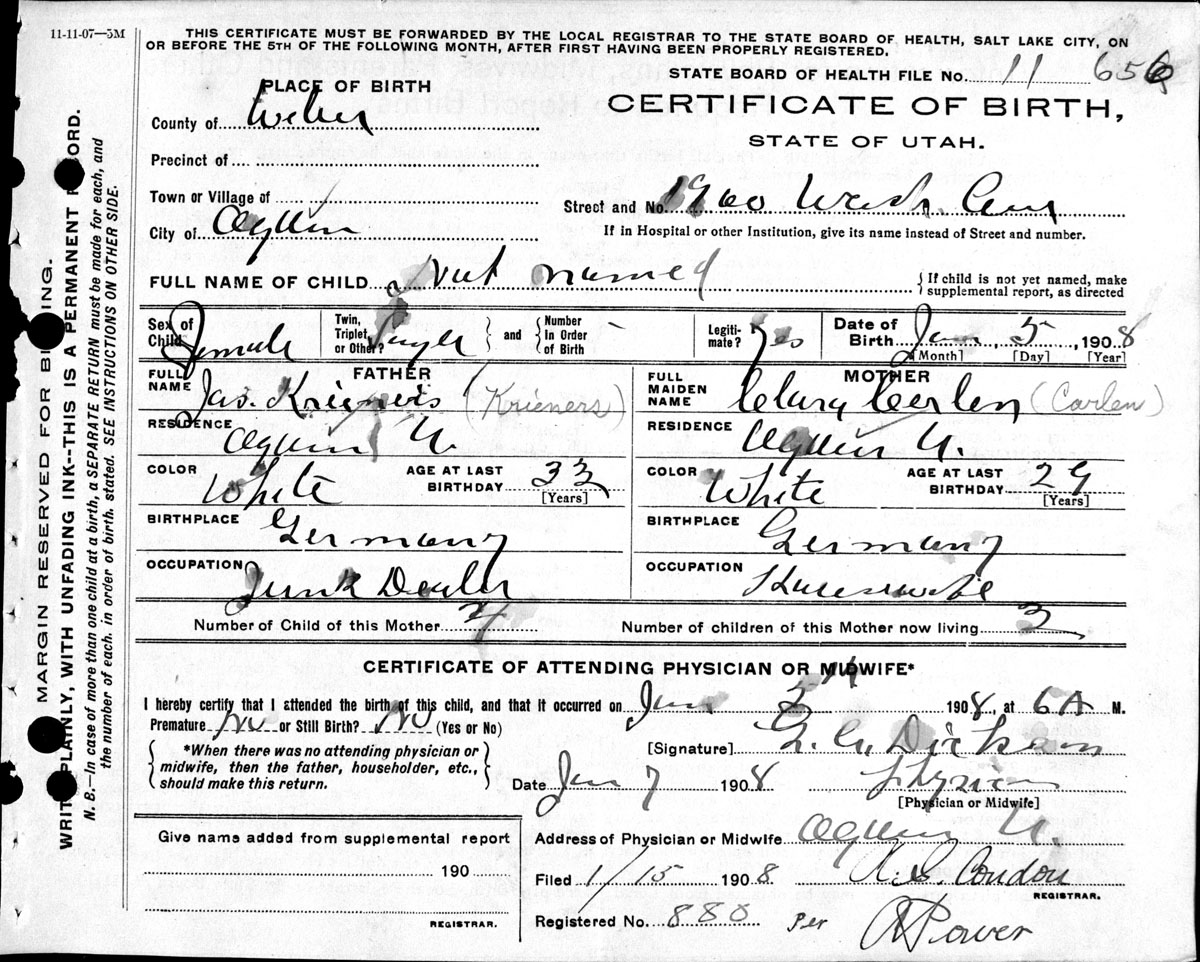 11-11-07—5M
THIS CERTIFICATE MUST BE FORWARDED BY THE LOCAL REGISTRAR TO THE STATE BOARD OF HEALTH, SALT LAKE CITY, ON
OR BEFORE THE 5TH OF THE FOLLOWING MONTH, AFTER FIRST HAVING BEEN PROPERLY REGISTERED.
STATE BOARD OF HEALTH FILE No. 11 656
PLACE OF BIRTH
CERTIFICATE OF BIRTH,
STATE OF UTAH.
County of Weber
Precinct of
Town or Village of
Street and No. 1960 Wash. Ave
City of Ogden
If in Hospital or other Institution, give its name instead of Street and number.
FULL NAME OF CHILD not named
{ If child is not yet named, make
supplemental report, as directed
Sex of Child Female
Twin, Triplet, or Other? Single } and { Number In Order of Birth -
Legiti- mate? Yes
Date of Birth Jan 5, 1908
[Month] [Day] [Year]
FATHER
FULL NAME Jas. Krieners (Krieners)
MOTHER
FULL MAIDEN NAME Clara Carlen (Carlen)
RESIDENCE Ogden U.
RESIDENCE Ogden U.
COLOR White AGE AT LAST BIRTHDAY 33 [Years]
COLOR White AGE AT LAST BIRTHDAY 29 [Years]
BIRTHPLACE Germany
BIRTHPLACE Germany
OCCUPATION Junk Dealer
OCCUPATION Housewife
Number of Child of this Mother 4
Number of children of this Mother now living 3
CERTIFICATE OF ATTENDING PHYSICIAN OR MIDWIFE*
I hereby certify that I attended the birth of this child, and that it occurred on Jan 5th 1908, at 6 A M.
Premature No or Still Birth? No (Yes or No)
{ *When there was no attending physician or
midwife, then the father, householder, etc.,
should make this return. }
[Signature] Dickson
Date Jan 7 1908 Physician
[Physician or Midwife]
Give name added from supplemental report
190
REGISTRAR.
Address of Physician or Midwife Ogden U.
Filed 1/15 1908 Condon
REGISTRAR.
Registered No. 888 Per Power
MARGIN RESERVED FOR BINDING.
WRITE PLAINLY, WITH UNFADING INK--THIS IS A PERMANENT RECORD.
N. B.—In case of more than one child at a birth, a SEPARATE RETURN must be made for each, and
the number of each, in order of birth, stated. SEE INSTRUCTIONS ON OTHER SIDE.